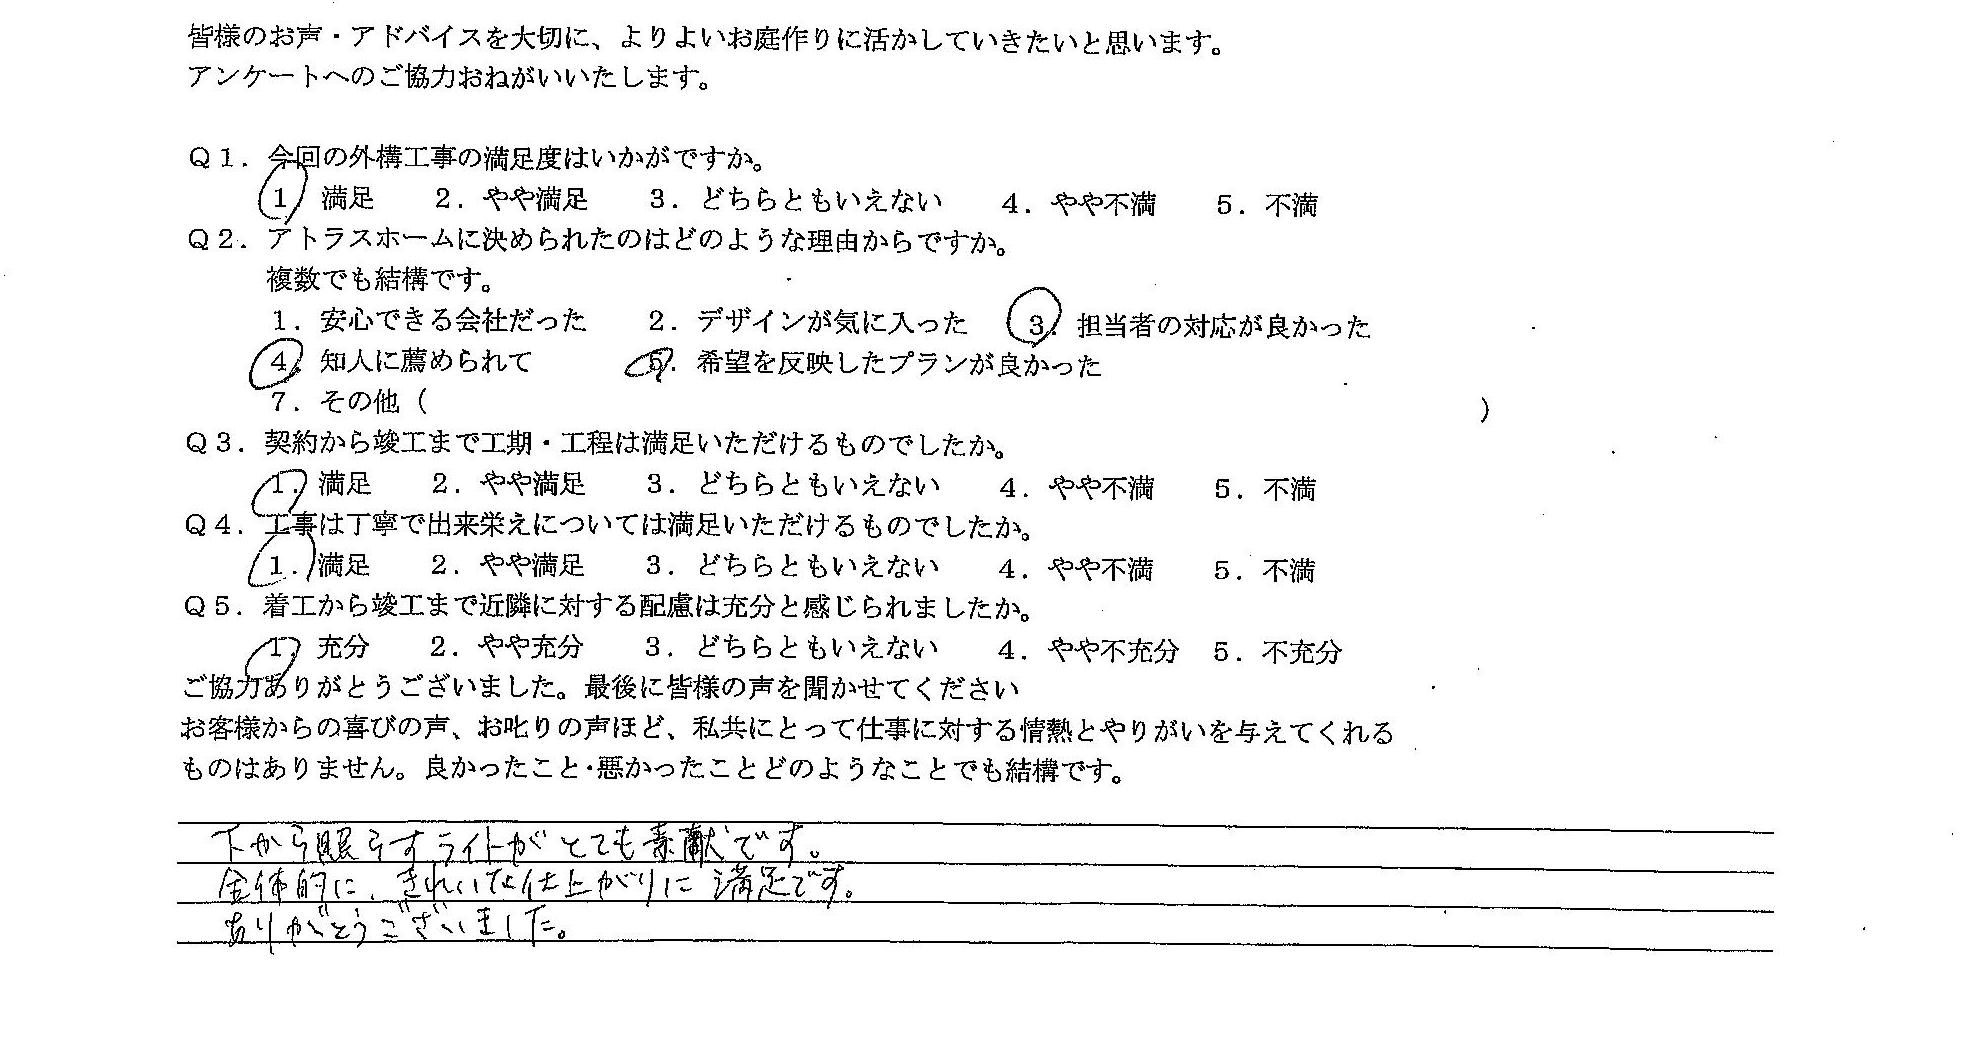 皆様のお声・アドバイスを大切に、よりよいお庭作りに活かしていきたいと思います。
アンケートへのご協力おねがいいたします。
Q1．今回の外構工事の満足度はいかがですか。
1 満足　2．やや満足　3．どちらともいえない　4．やや不満　5．不満
Q2．アトラスホームに決められたのはどのような理由からですか。
複数でも結構です。
1．安心できる会社だった　2．デザインが気に入った　3．担当者の対応が良かった
4．知人に薦められて　6．希望を反映したプランが良かった
7．その他（　　　）
Q3．契約から竣工まで工期・工程は満足いただけるものでしたか。
1．満足　2．やや満足　3．どちらともいえない　4．やや不満　5．不満
Q4．工事は丁寧で出来栄えについては満足いただけるものでしたか。
1．満足　2．やや満足　3．どちらともいえない　4．やや不満　5．不満
Q5．着工から竣工まで近隣に対する配慮は充分と感じられましたか。
1．充分　2．やや充分　3．どちらともいえない　4．やや不充分　5．不充分
ご協力ありがとうございました。最後に皆様の声を聞かせてください
お客様からの喜びの声、お叱りの声ほど、私共にとって仕事に対する情熱とやりがいを与えてくれる
ものはありません。良かったこと・悪かったことどのようなことでも結構です。
下から照らすライトがとても素敵です。
全体的に、きれいな仕上がりに満足です。
ありがとうございました。